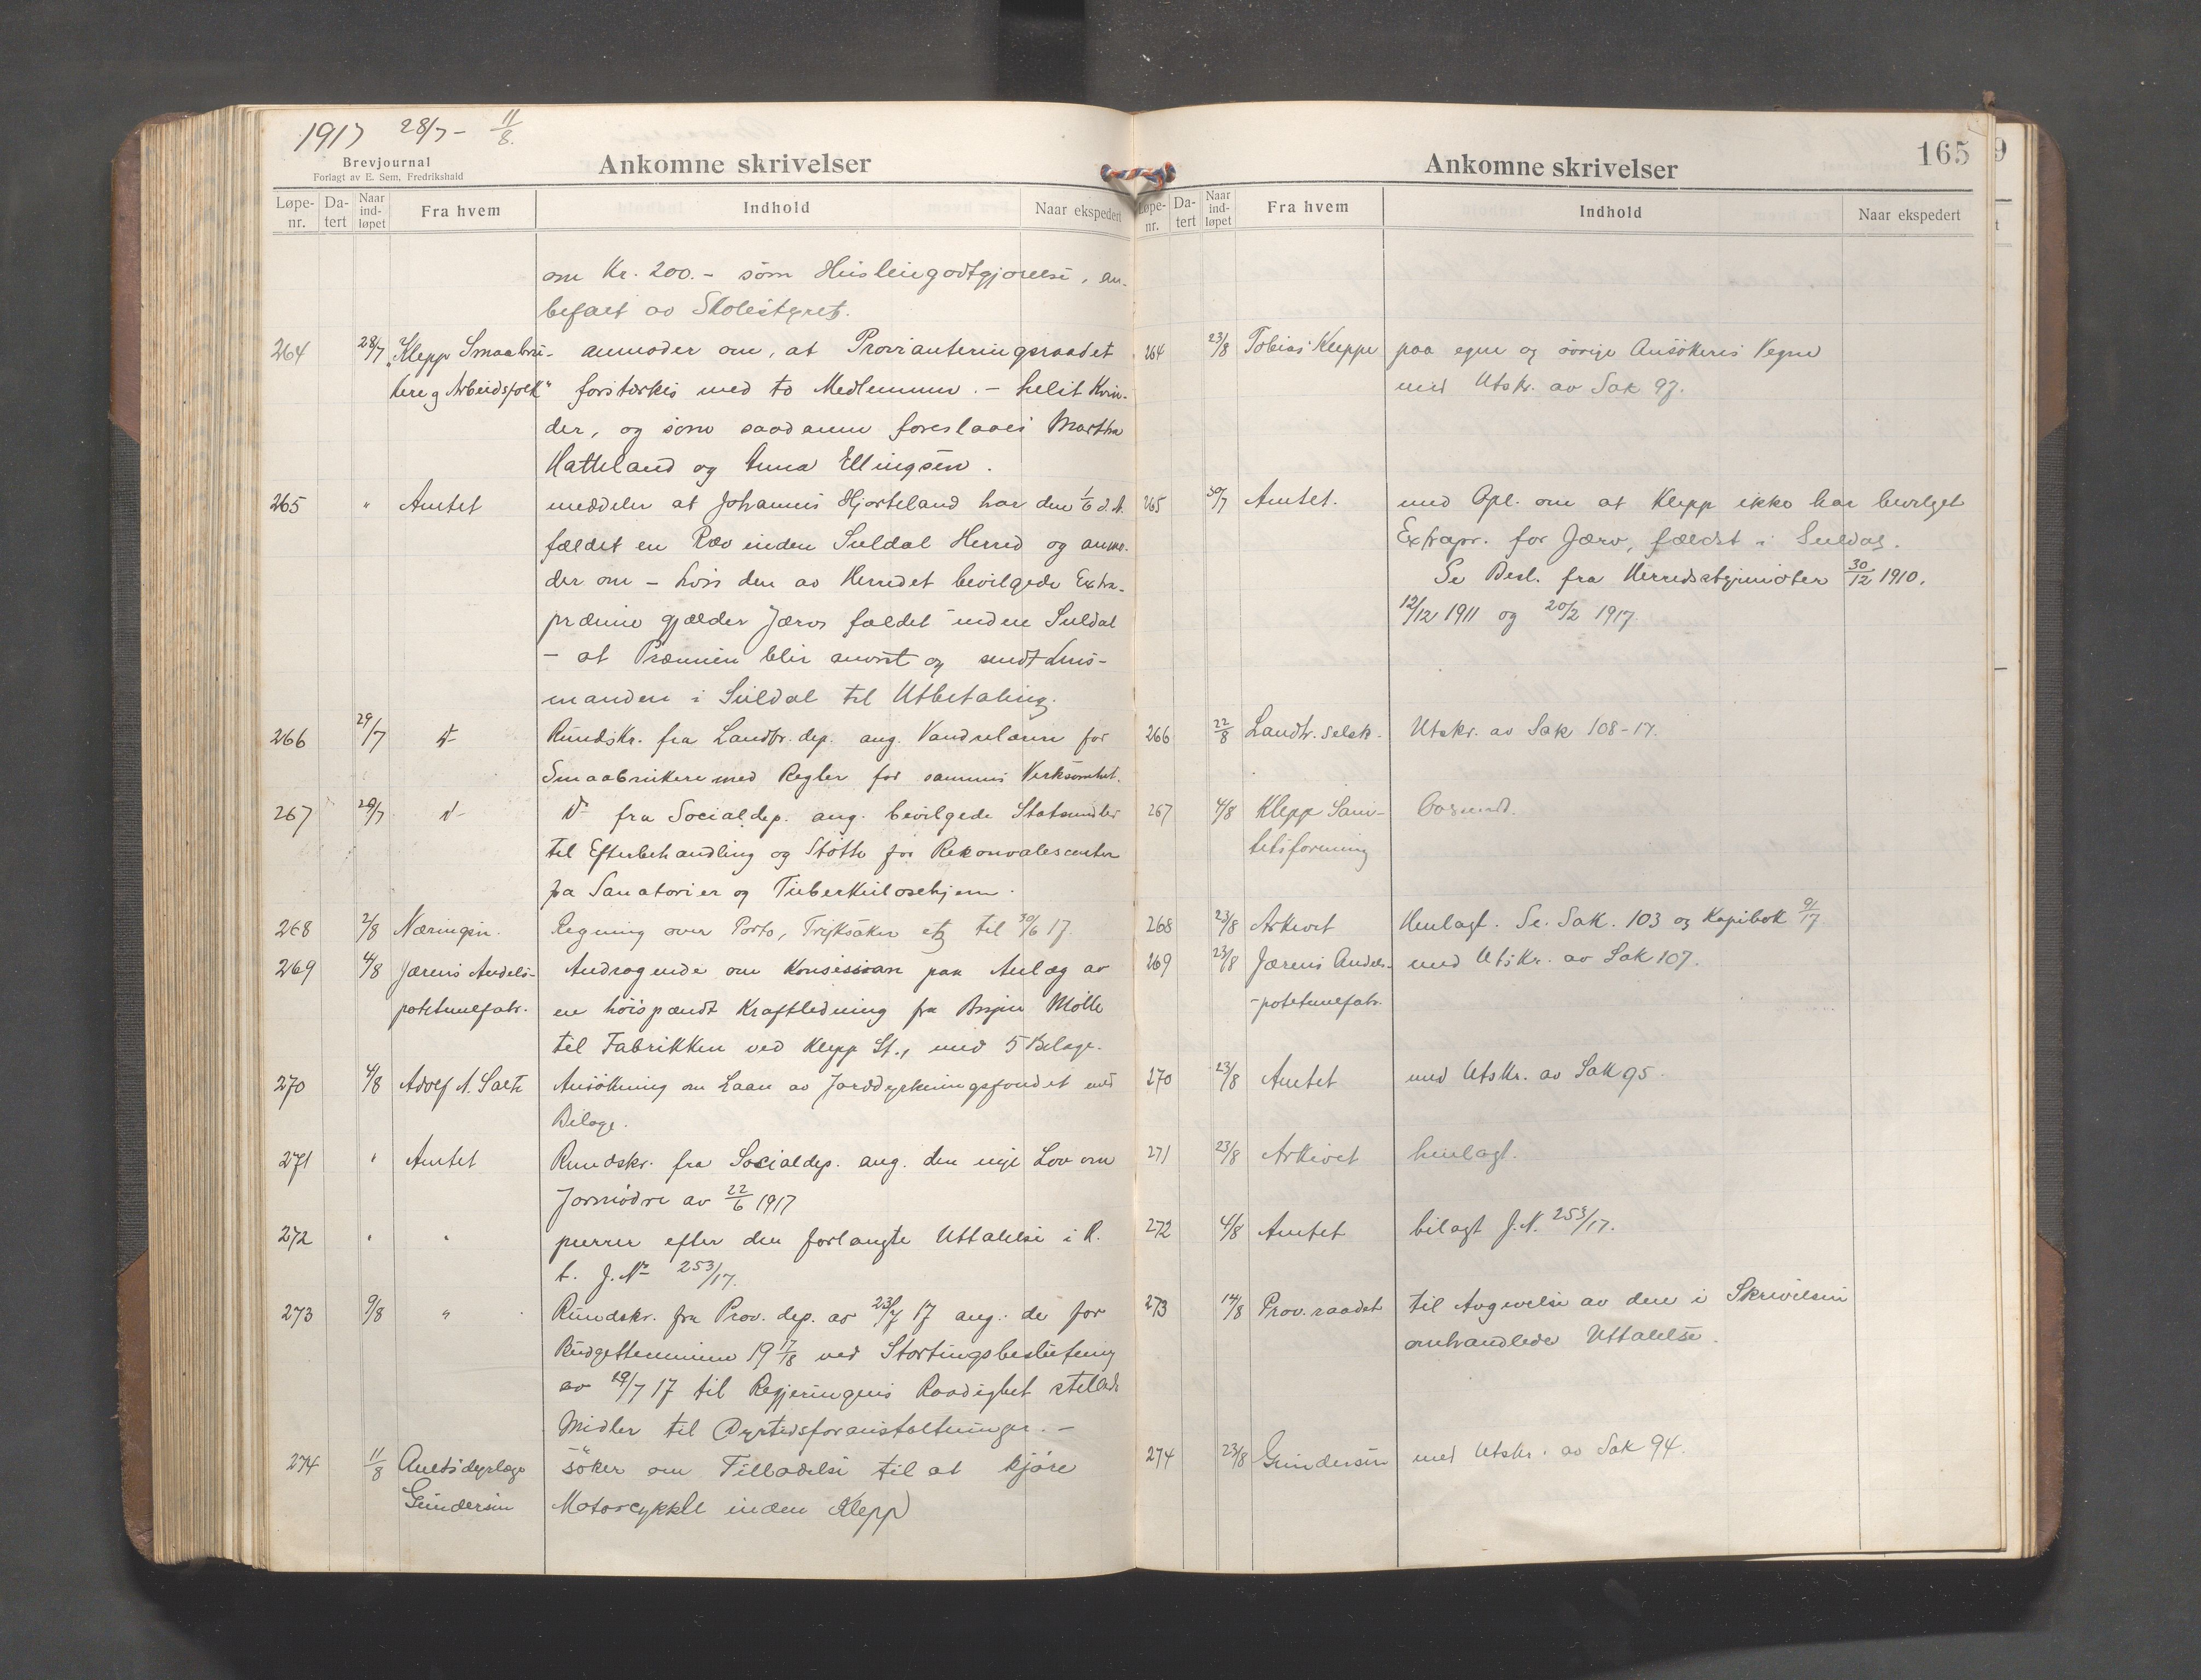 1917 28/7 - 11/8.
Brevjournal
Forlagt av E. Sem, Fredrikshald
Ankomne skrivelser
Løpe-nr. Da-tert Naar ind-løpet Fra hvem Indhold Naar ekspedert
om Kr. 200.- som Husleiegodtgjørelse, an-
befalt av Skolestyret.
264 28/7 "Klepp Smaabru- anmoder om, at Provianteringsraadet
kere og Arbeidsfolk" forsterkes med to Medlemmer. - helst Kvin-
der, og som saadanne foreslaaes Martha
Hatteland og Anna Ellingsen.
265 " Amtet meddeler at Johannes Hjorteland har den 1/6 d. A.
fældet en Ræv inden Suldal Herred og anmo-
der om - hvis den av Herredet bevilgede Extra-
præmie gjælder Jærv fældet inden Suldal
- at Præmien blir anvist og sendt Lens-
manden i Suldal til Utbetaling.
266 29/7 do Rundskr. fra Landbr. dep. ang. Vandrelærer for
Smaabrukere med Regler for sammes Verksomhet.
267 29/7 do do fra Socialdep. ang. bevilgede Statsmidler
til Efterbehandling og Støtte for Rekonvalescenter
fra Sanatorier og Tuberkulosehjem.
268 2/8 Næringsn. Regning over Porto, Tryksaker etz til 30/6 17.
269 4/8 Jærens Andels- Andragende om Konsession paa Anlæg av
potetmelfabr. en høispændt Kraftledning fra Mølle
til Fabrikken ved Klepp St., med 5 Bilage.
270 4/8 Adolf A. Salte Ansøkning om Laan av Jorddyrkningsfondet med
Bilage.
271 " Amtet Rundskr. fra Socialdep. ang. den nye Lov om
Jormødre av 22/6 1917
272 " " purrer efter den forlangte Uttalelse i R.
t. J. No 253/17.
273 9/8 " Rundskr. fra Prov. dep. av 23/7 17 ang. de for
Budgetterminen 19 17/18 ved Stortingsbeslutning
av 19/7 17 til Regjeringens Raadighet stillede
Midler til Dyrtidsforanstaltninger. -
274 11/8 Amtsdyrlæge søker om Tilladelse til at kjøre
Gundersen Motorcykkel inden Klepp
Ankomne skrivelser
165
Løpe-nr. Da-tert Naar ind-løpet Fra hvem Indhold Naar ekspedert
264 23/8 Tobias Kleppe paa egne og øvrige Ansøkeres Vegne
med Utskr. av Sak 97.
265 30/7 Amtet. med Opl. om at Klepp ikke har bevilget
Extrapr. for Jærv, fældet i Suldal.
Se Besl. fra Herredsstyrmøter 30/12 1910,
12/12 1911 og 20/2 1917.
266 22/8 Landbr. selsk. Utskr. av Sak 108-17.
267 4/8 Klepp Sani- Oversendt.
tetsforening
268 23/8 Arkivet Henlagt. Se Sak. 103 og Kopibok 91/17
269 23/8 Jærens Andels- med Utskr. av Sak 107.
-potetmelfabr.
270 23/8 Amtet med Utskr. av Sak 95.
271 23/8 Arkivet henlagt.
272 4/8 Amtet bilagt J. N. 253/17.
273 14/8 Prov. raadet til Avgivelse av den i Skrivelsen
omhandlede Uttalelse.
274 23/8 Gundersen med Utskr. av Sak 94.